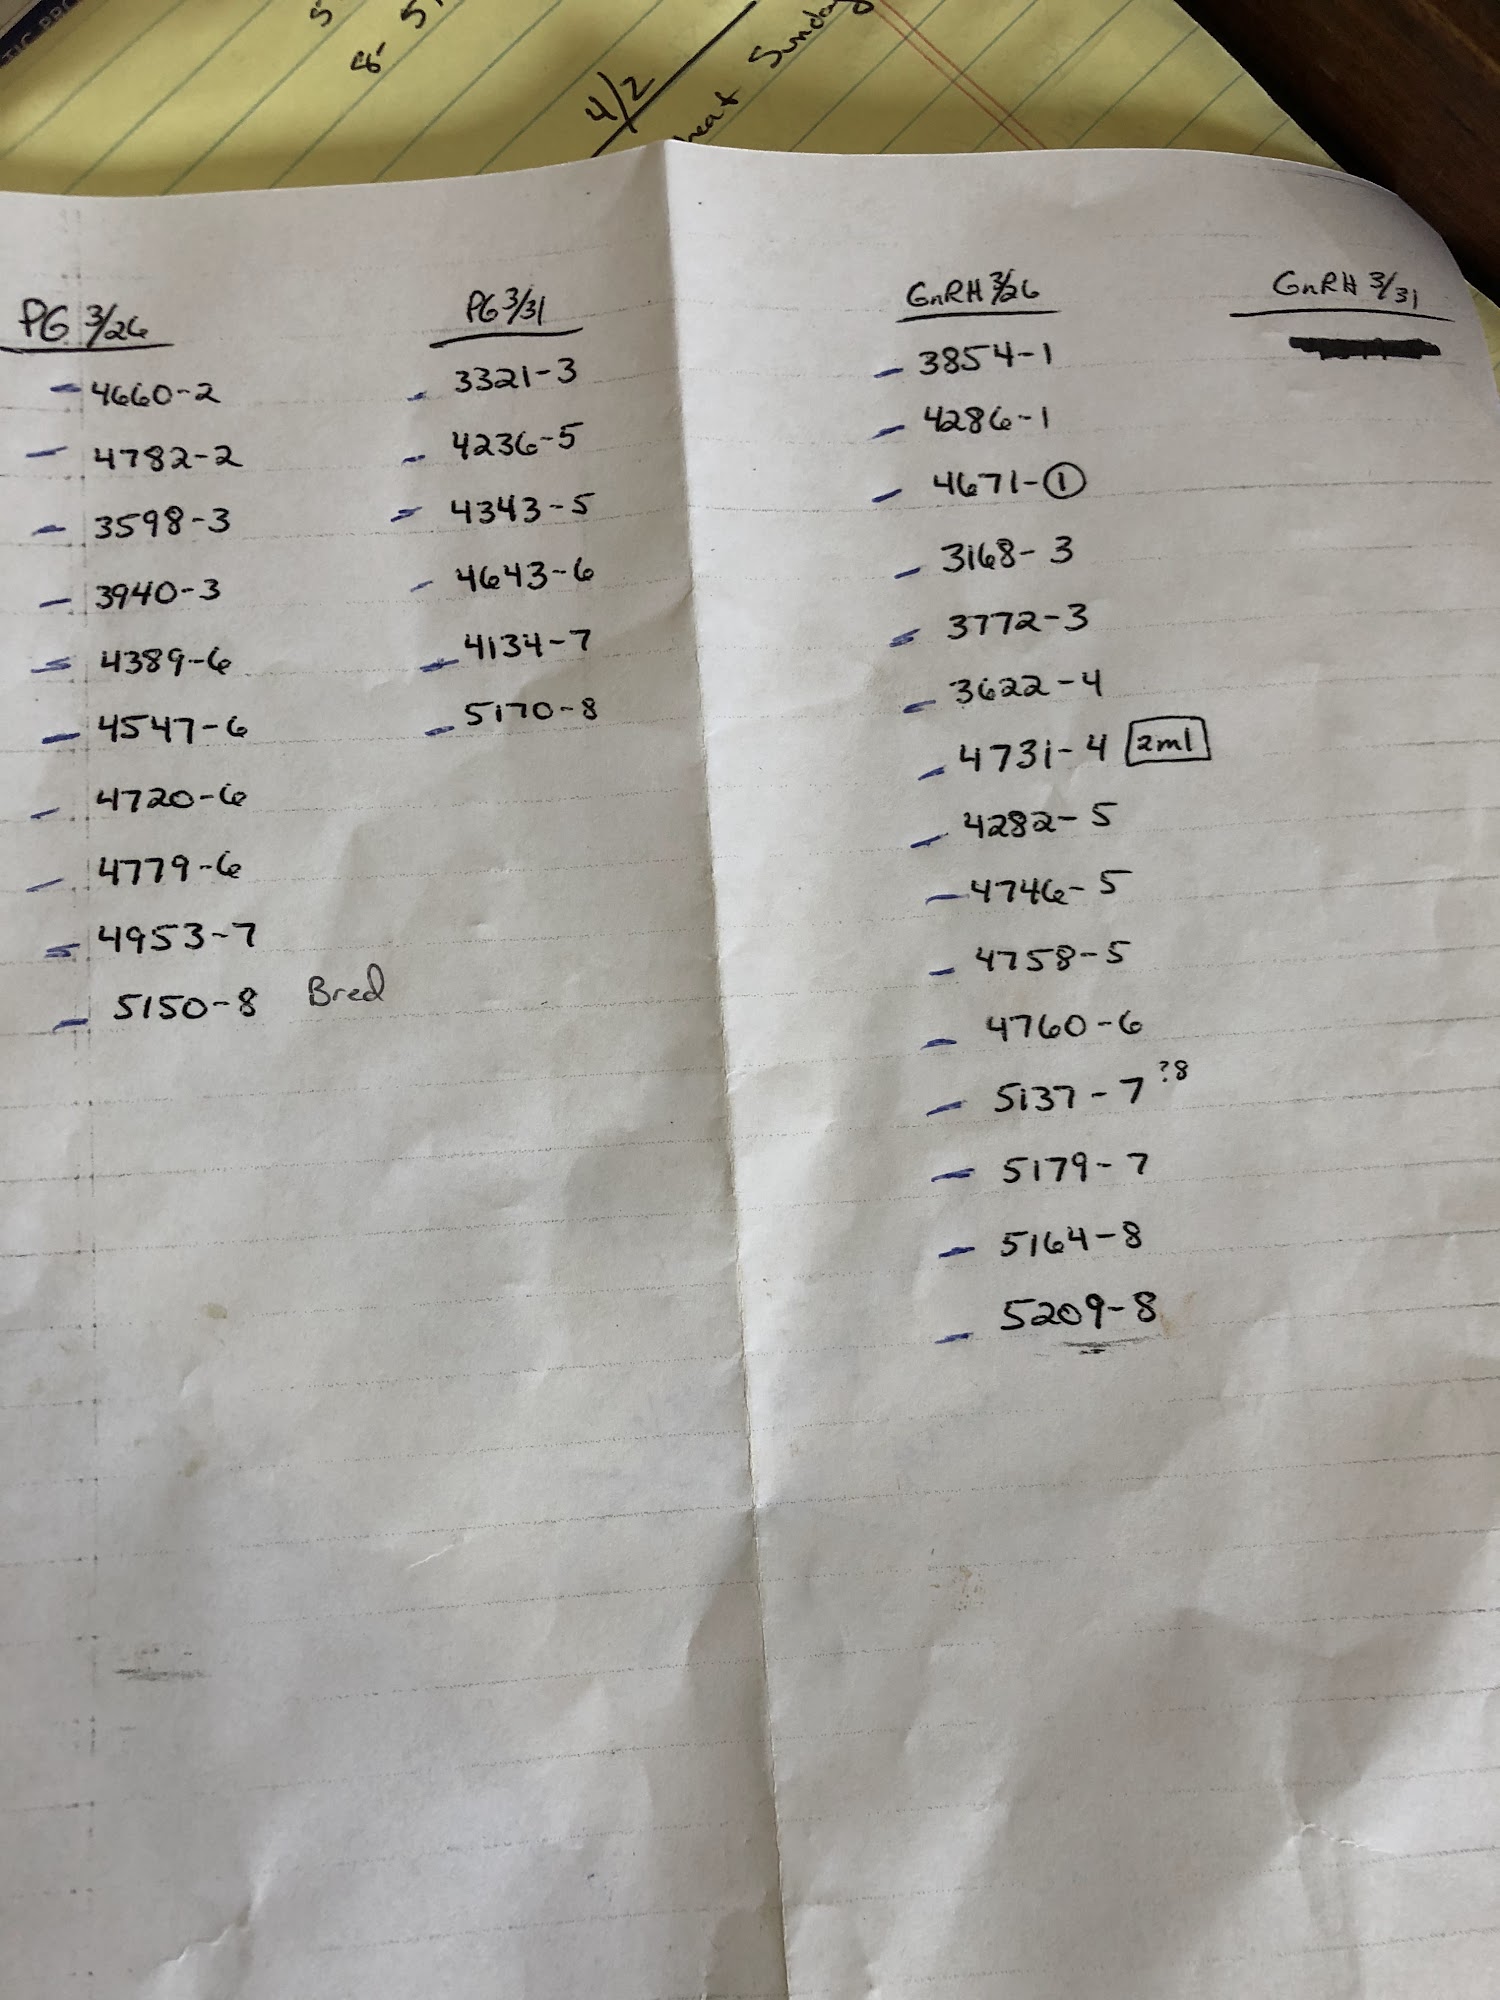 8-
4/2
heat Sunday
PG 3/26
4660-2
4782-2
3598-3
3940-3
4389-6
4547-6
4720-6
4779-6
4953-7
5150-8 Bred
PG 3/31
3321-3
4236-5
4343-5
4643-6
4134-7
5170-8
GnRH 3/26
3854-1
4286-1
4671-1
3168-3
3772-3
3622-4
4731-4 2ml
4282-5
4746-5
4758-5
4760-6
5137-7 ?8
5179-7
5164-8
5209-8
GnRH 3/31